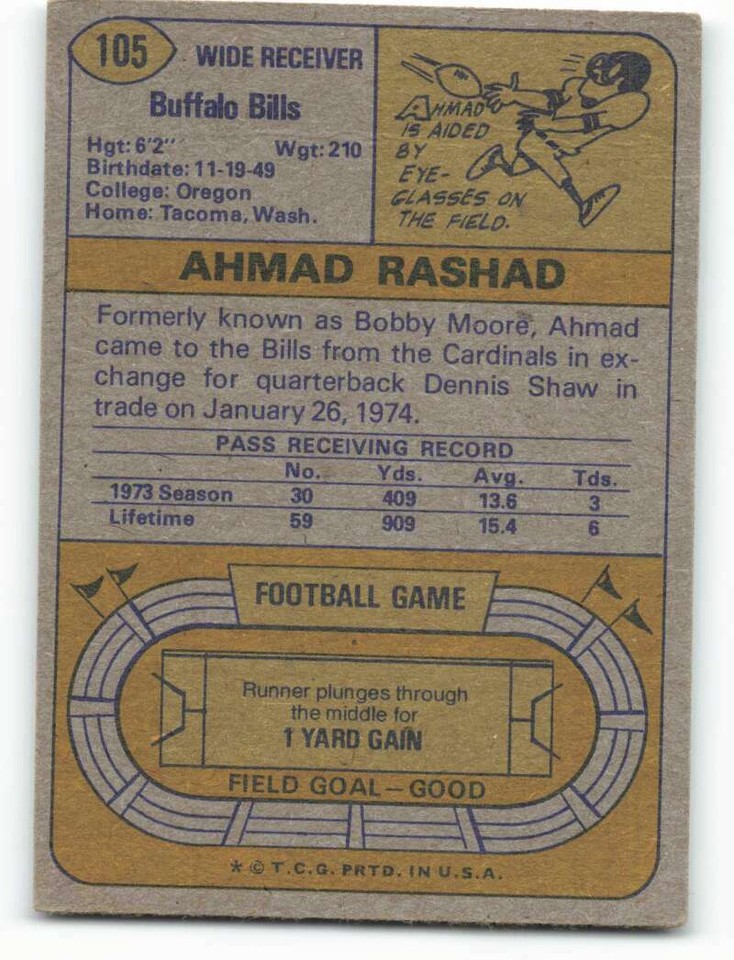 105 WIDE RECEIVER
Buffalo Bills
Hgt: 6'2" Wgt: 210
Birthdate: 11-19-49
College: Oregon
Home: Tacoma, Wash.
AHMAD
IS AIDED
BY
EYE-
GLASSES ON
THE FIELD.
AHMAD RASHAD
Formerly known as Bobby Moore, Ahmad
came to the Bills from the Cardinals in ex-
change for quarterback Dennis Shaw in
trade on January 26, 1974.
PASS RECEIVING RECORD
No. Yds. Avg. Tds.
1973 Season 30 409 13.6 3
Lifetime 59 909 15.4 6
FOOTBALL GAME
Runner plunges through
the middle for
1 YARD GAIN
FIELD GOAL—GOOD
* © T.C.G. PRTD. IN U.S.A.